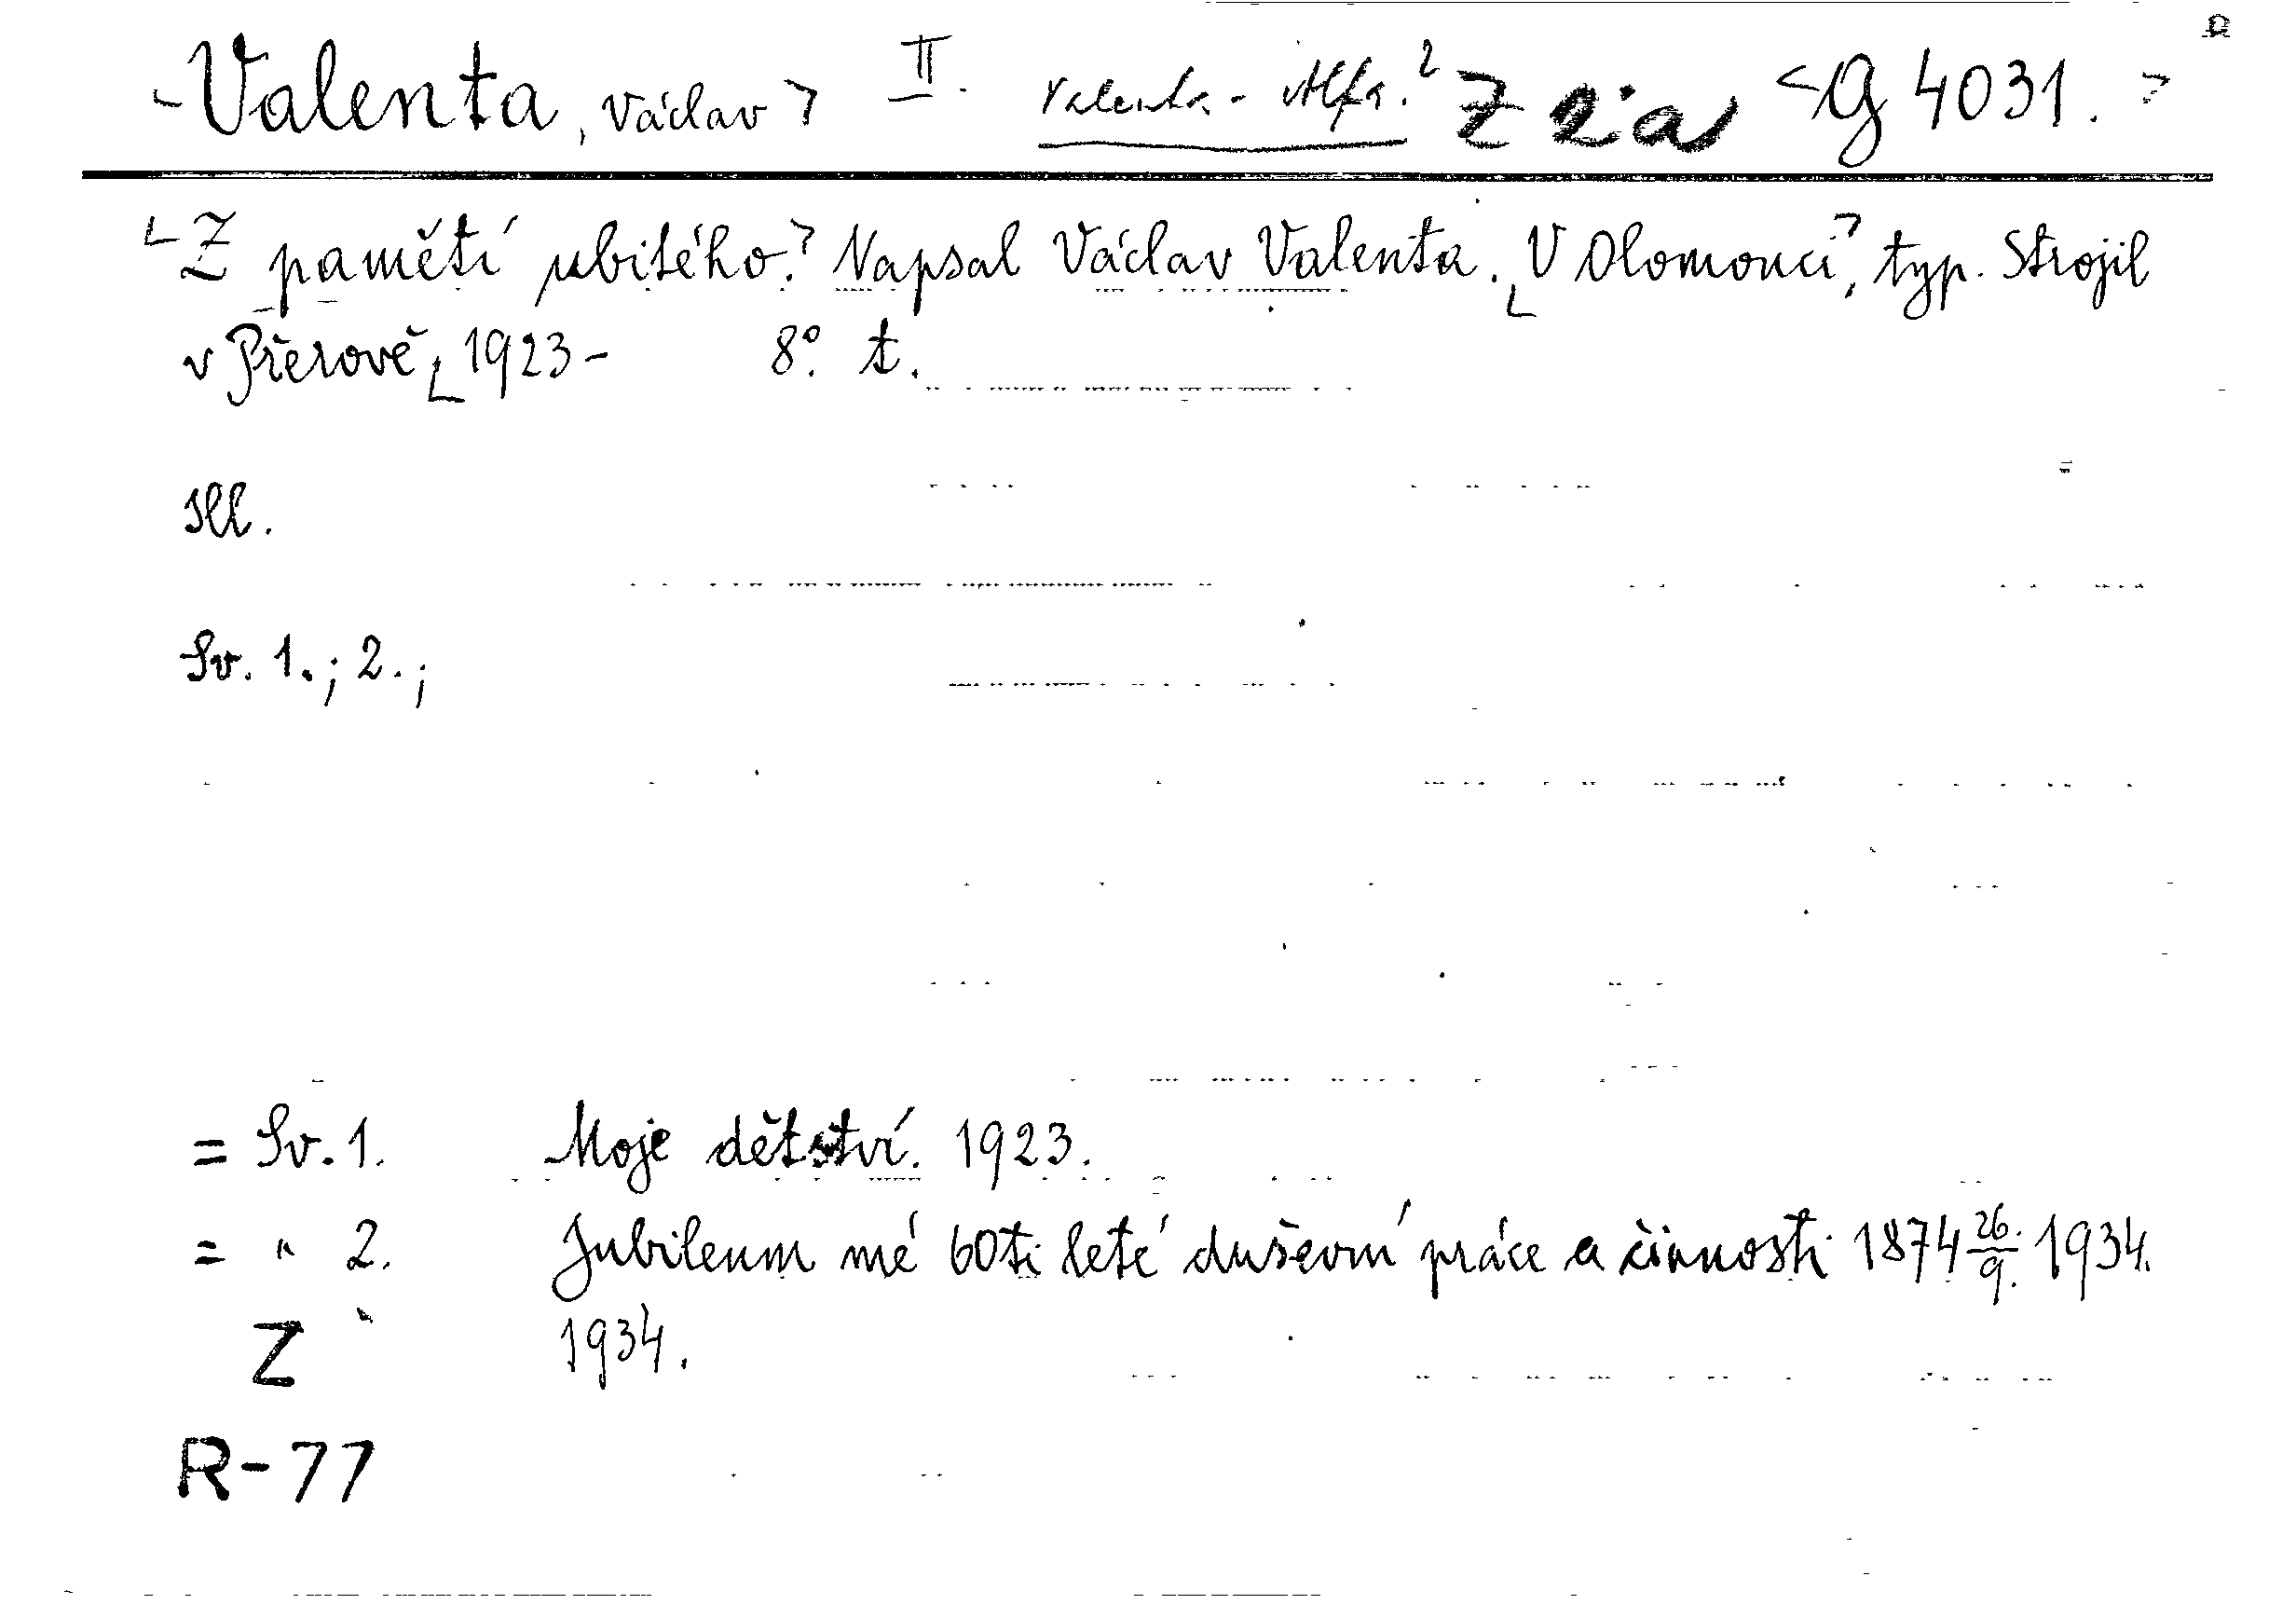 Valenta, Václav II. Valenta-Alfa. 2 Z 2a G 4031.
Z pamětí ubitého. Napsal Václav Valenta. V Olomouci, typ. Strojil
v Přerově, 1923- 8°. t.
Ill.
Sv. 1.; 2.;
= Sv. 1. Moje dětství. 1923.
= " 2. Jubileum mé 60ti leté duševní práce a činnosti 1874 26./9. 1934.
Z 1934.
R-77